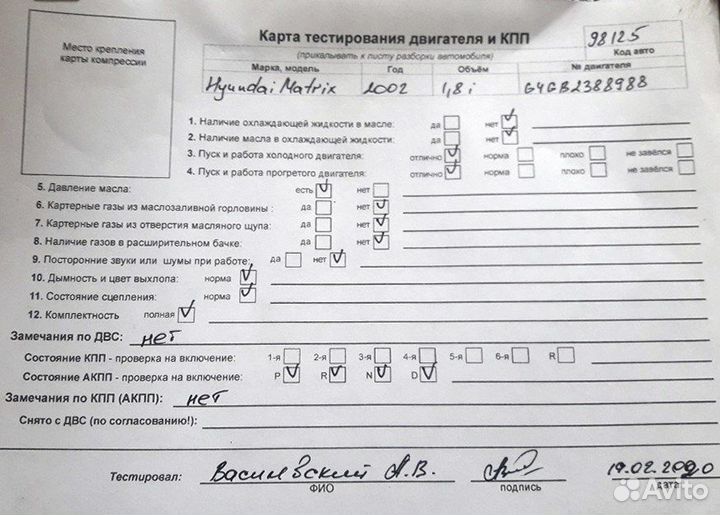 Место крепления карты компрессии
Карта тестирования двигателя и КПП
98125
(прикалывать к листу разборки автомобиля)
Код авто
Марка, модель Год Объём № двигателя
Hyundai Matrix 2002 1,8 i G4GB2388988
1. Наличие охлаждающей жидкости в масле: да нет
2. Наличие масла в охлаждающей жидкости: да нет
3. Пуск и работа холодного двигателя: отлично норма плохо не завёлся
4. Пуск и работа прогретого двигателя: отлично норма плохо не завёлся
5. Давление масла: есть нет
6. Картерные газы из маслозаливной горловины : да нет
7. Картерные газы из отверстия масляного щупа: да нет
8. Наличие газов в расширительном бачке: да нет
9. Посторонние звуки или шумы при работе: да нет
10. Дымность и цвет выхлопа: норма
11. Состояние сцепления: норма
12. Комплектность полная
Замечания по ДВС: нет
Состояние КПП - проверка на включение: 1-я 2-я 3-я 4-я 5-я 6-я R
Состояние АКПП - проверка на включение: P R N D
Замечания по КПП (АКПП): нет
Снято с ДВС (по согласованию!):
Тестировал: Василевский А.В. 19.02.2020
ФИО подпись дата
Avito